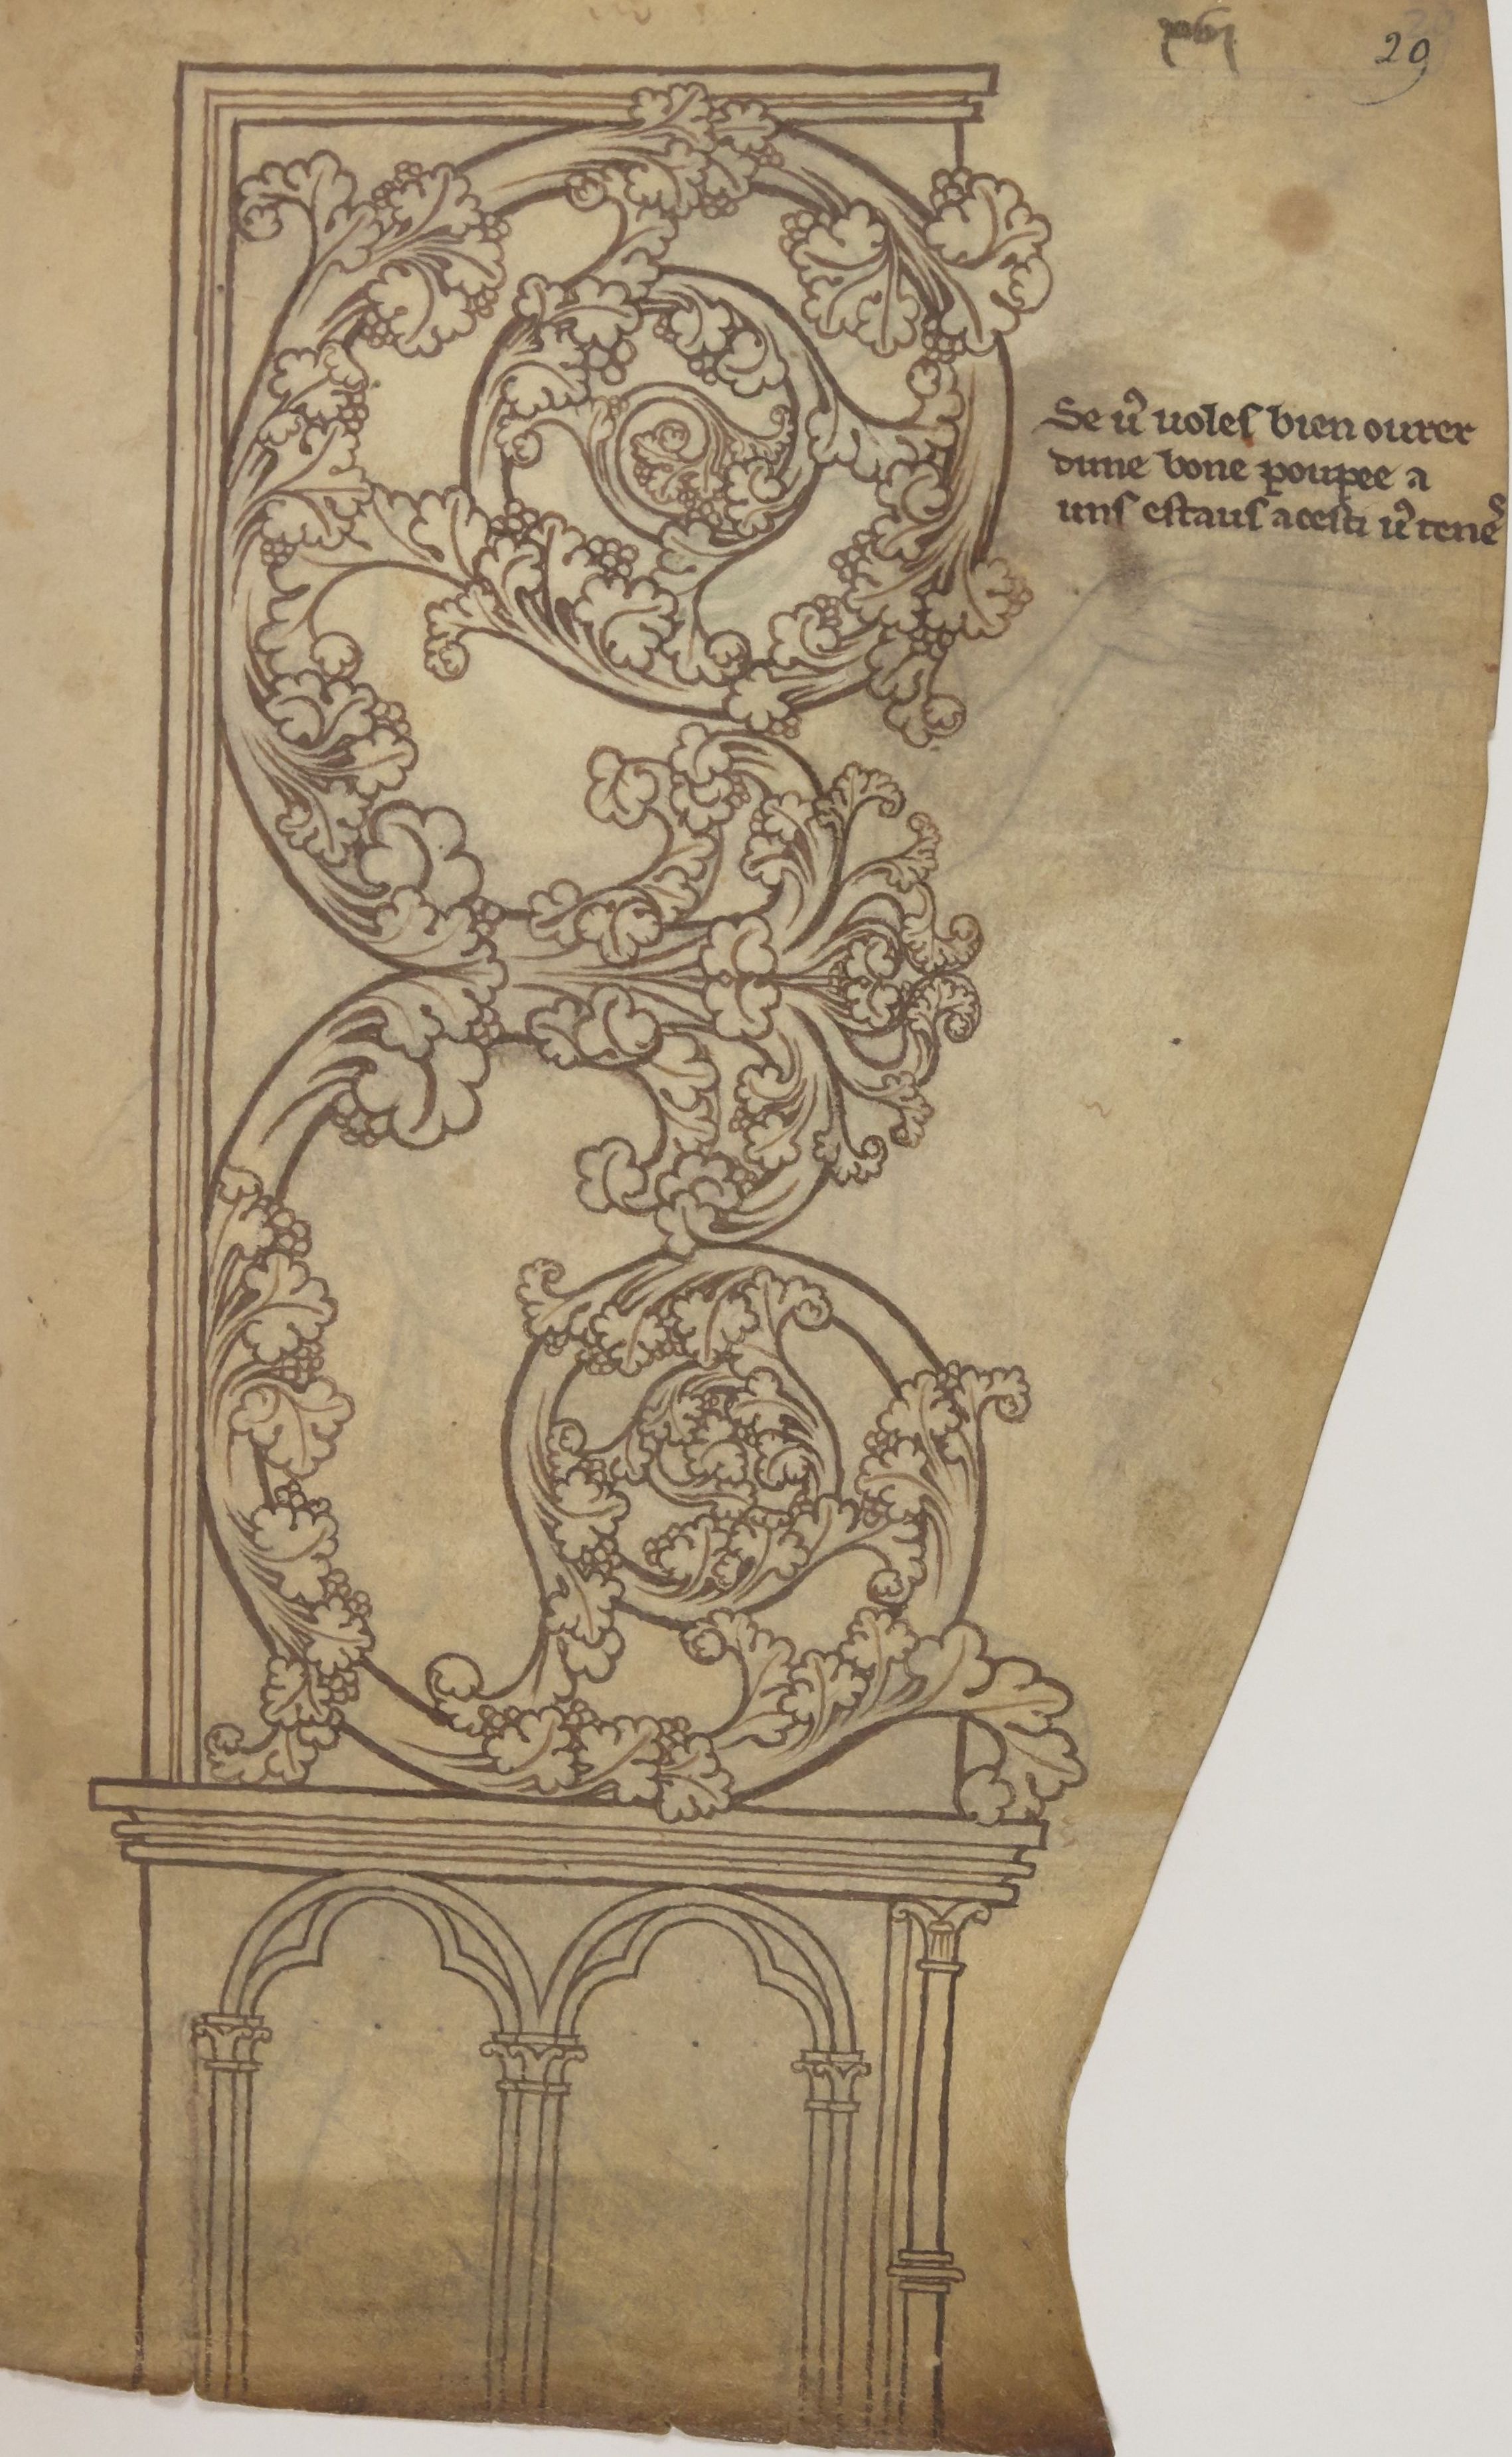 29
Se vͬ uoles bien ourer
dune bone poupee a
uns estaus acesti vͬ tenes